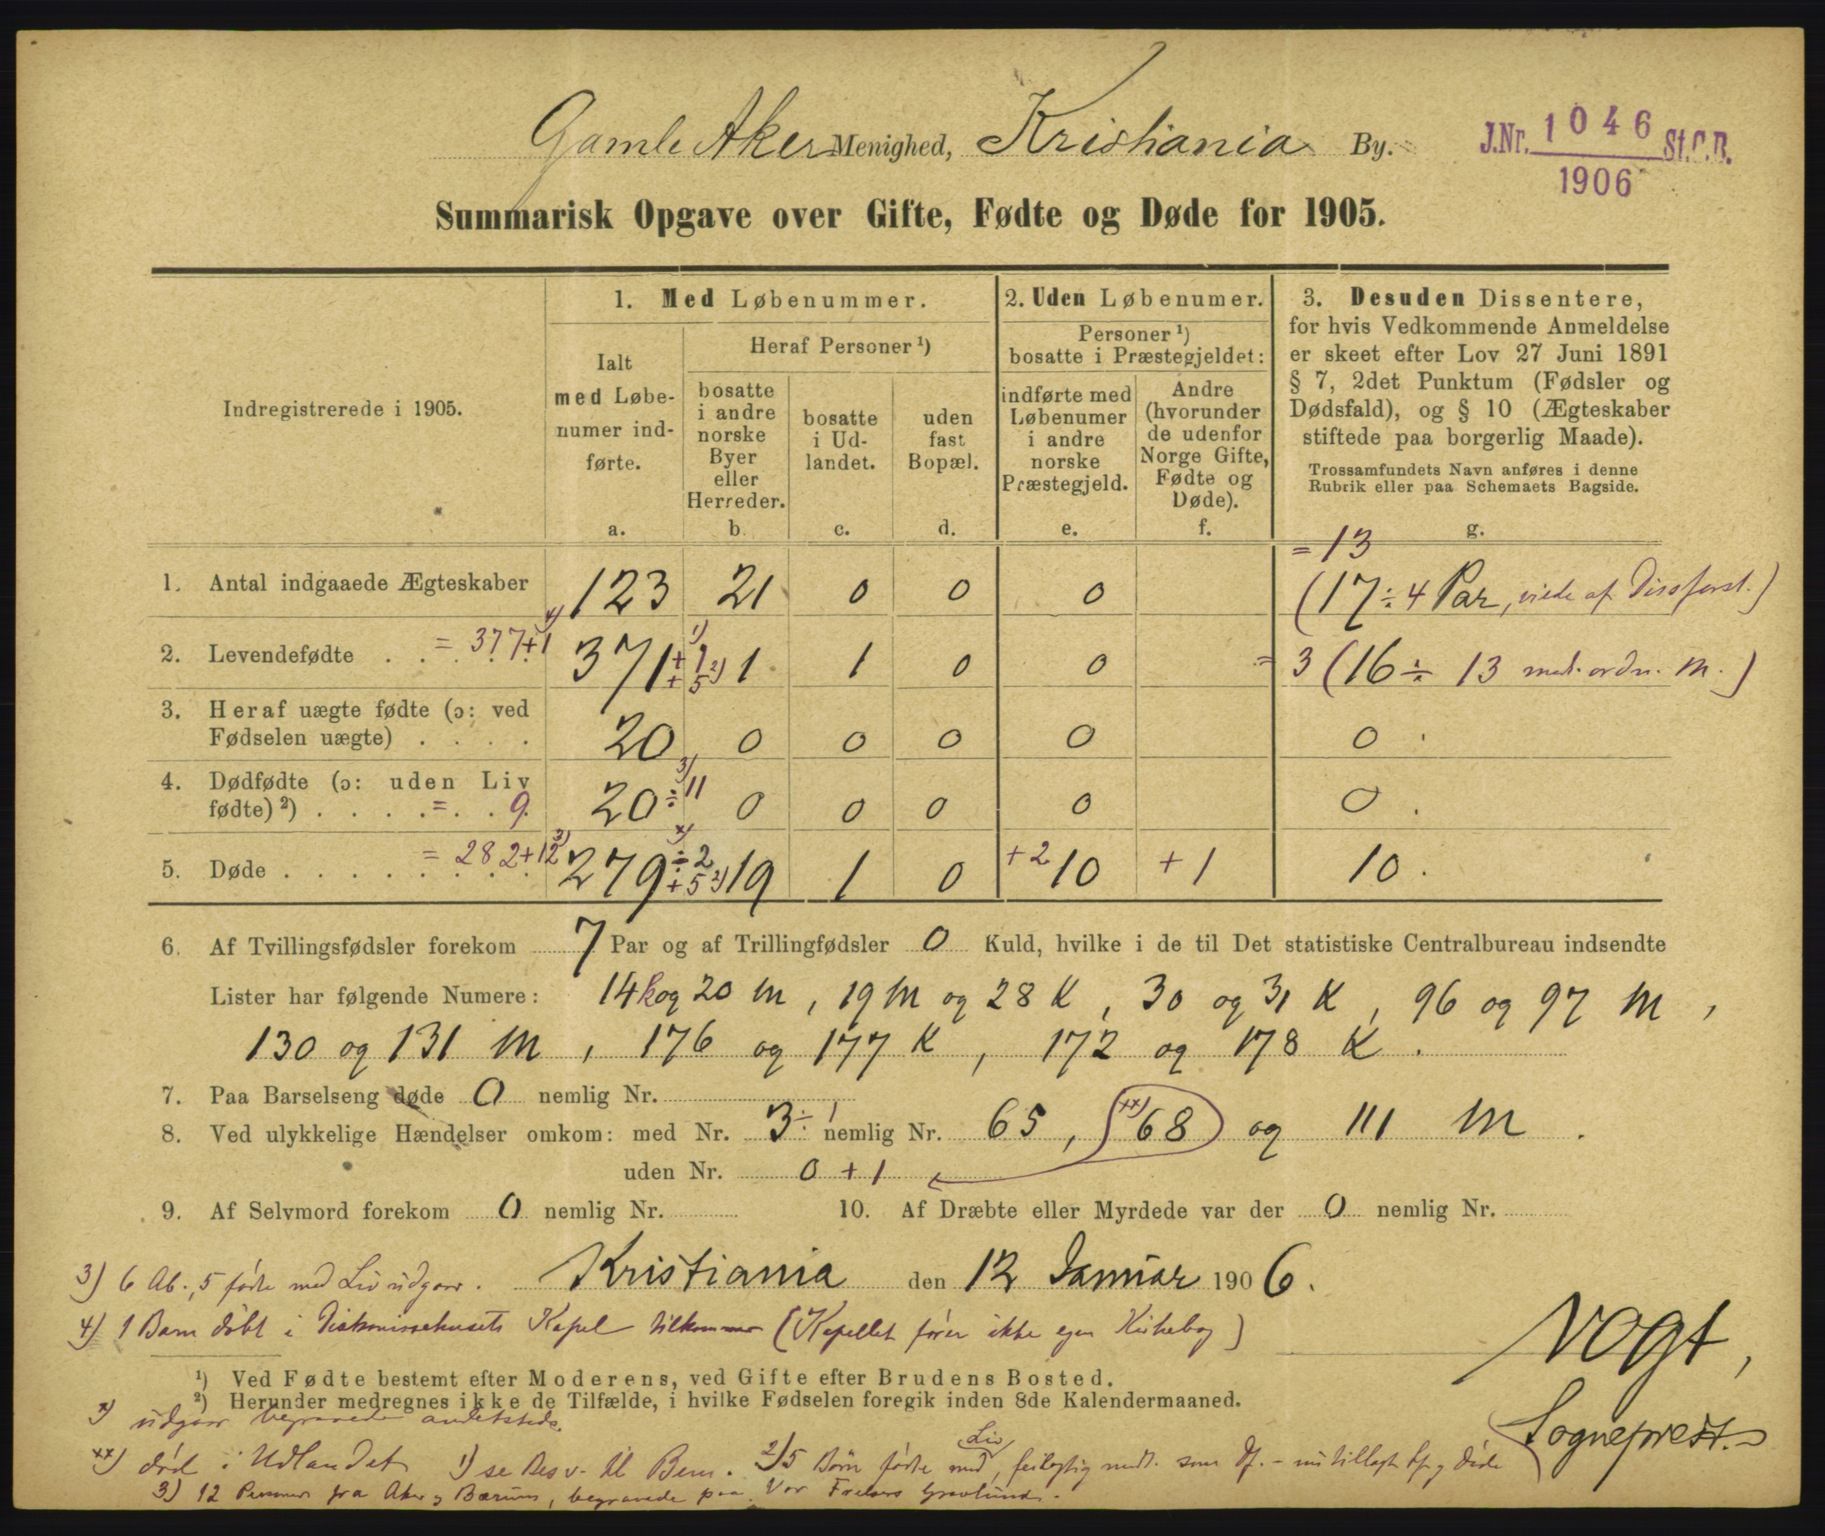 Gamle Aker Menighed, Kristiania By.
J.Nr. 1046 St.C.B.
1906
Summarisk Opgave over Gifte, Fødte og Døde for 1905.
Indregistrerede i 1905.
1. Med Løbenummer.
Ialt
med Løbe-
numer ind-
førte.
a.
Heraf Personer ¹)
bosatte
i andre
norske
Byer
eller
Herreder.
b.
bosatte
i Ud-
landet.
c.
uden
fast
Bopæl.
d.
2. Uden Løbenumer.
Personer ¹)
bosatte i Præstegjeldet:
indførte med
Løbenumer
i andre
norske
Præstegjeld.
e.
Andre
(hvorunder
de udenfor
Norge Gifte,
Fødte og
Døde).
f.
3. Desuden Dissentere,
for hvis Vedkommende Anmeldelse
er skeet efter Lov 27 Juni 1891
§ 7, 2det Punktum (Fødsler og
Dødsfald), og § 10 (Ægteskaber
stiftede paa borgerlig Maade).
Trossamfundets Navn anføres i denne
Rubrik eller paa Schemaets Bagside.
g.
= 13
1. Antal indgaaede Ægteskaber 123 21 0 0 0 (17 ÷ 4 Par, viede af Dissforst.)
2. Levendefødte . . . = 377+1 4) 371 + 1 1) + 5 2) 1 1 0 0 = 3 (16 ÷ 13 med. ordn. M.)
3. Heraf uægte fødte (ɔ: ved
Fødselen uægte) . . . . 20 0 0 0 0 0
4. Dødfødte (ɔ: uden Liv
fødte) ²) . . . . = . . 9. 20 ÷ 11 3) 0 0 0 0 0
5. Døde . . . . = 282+12 3) 279 ÷ 2 x) + 5 2) 19 1 0 +2 10 +1 10
6. Af Tvillingsfødsler forekom 7 Par og af Trillingfødsler 0 Kuld, hvilke i de til Det statistiske Centralbureau indsendte
Lister har følgende Numere: 14 k og 20 M, 19 M og 28 K, 30 og 31 K, 96 og 97 M,
130 og 131 M, 176 og 177 K, 172 og 178 K.
7. Paa Barselseng døde 0 nemlig Nr.
8. Ved ulykkelige Hændelser omkom: med Nr. 3 ÷ 1 nemlig Nr. 65, xx) 68 og 111 M.
uden Nr. 0 + 1
9. Af Selvmord forekom 0 nemlig Nr. 10. Af Dræbte eller Myrdede var der 0 nemlig Nr.
3) 6 Ab., 5 fødte med Liv udgaar. Kristiania den 12 Januar 1906.
4) 1 Barn døbt i Diakonissehusets Kapel tilkommer (Kapellet fører ikke egen Kirkebog)
Vogt,
¹) Ved Fødte bestemt efter Moderens, ved Gifte efter Brudens Bosted.
²) Herunder medregnes ikke de Tilfælde, i hvilke Fødselen foregik inden 8de Kalendermaaned.
x) udgaar begravede andetsteds.
Sogneprest.
xx) død i Udlandet 1) se Besv. til Bem. 2) 5 Børn fødte med Liv, feilagtig medt. som Df. - nu tillagt Lf. og Døde
3) 12 Personer fra Aker og Bærum, begravede paa Vor Frelsers Gravlund.